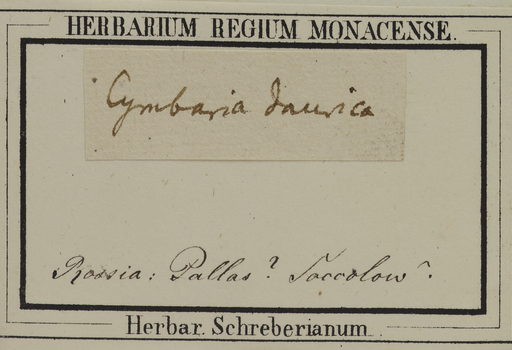 HERBARIUM REGIUM MONACENSE.
Cymbaria daurica
Rossia: Pallas? Soccolow.
Herbar. Schreberianum